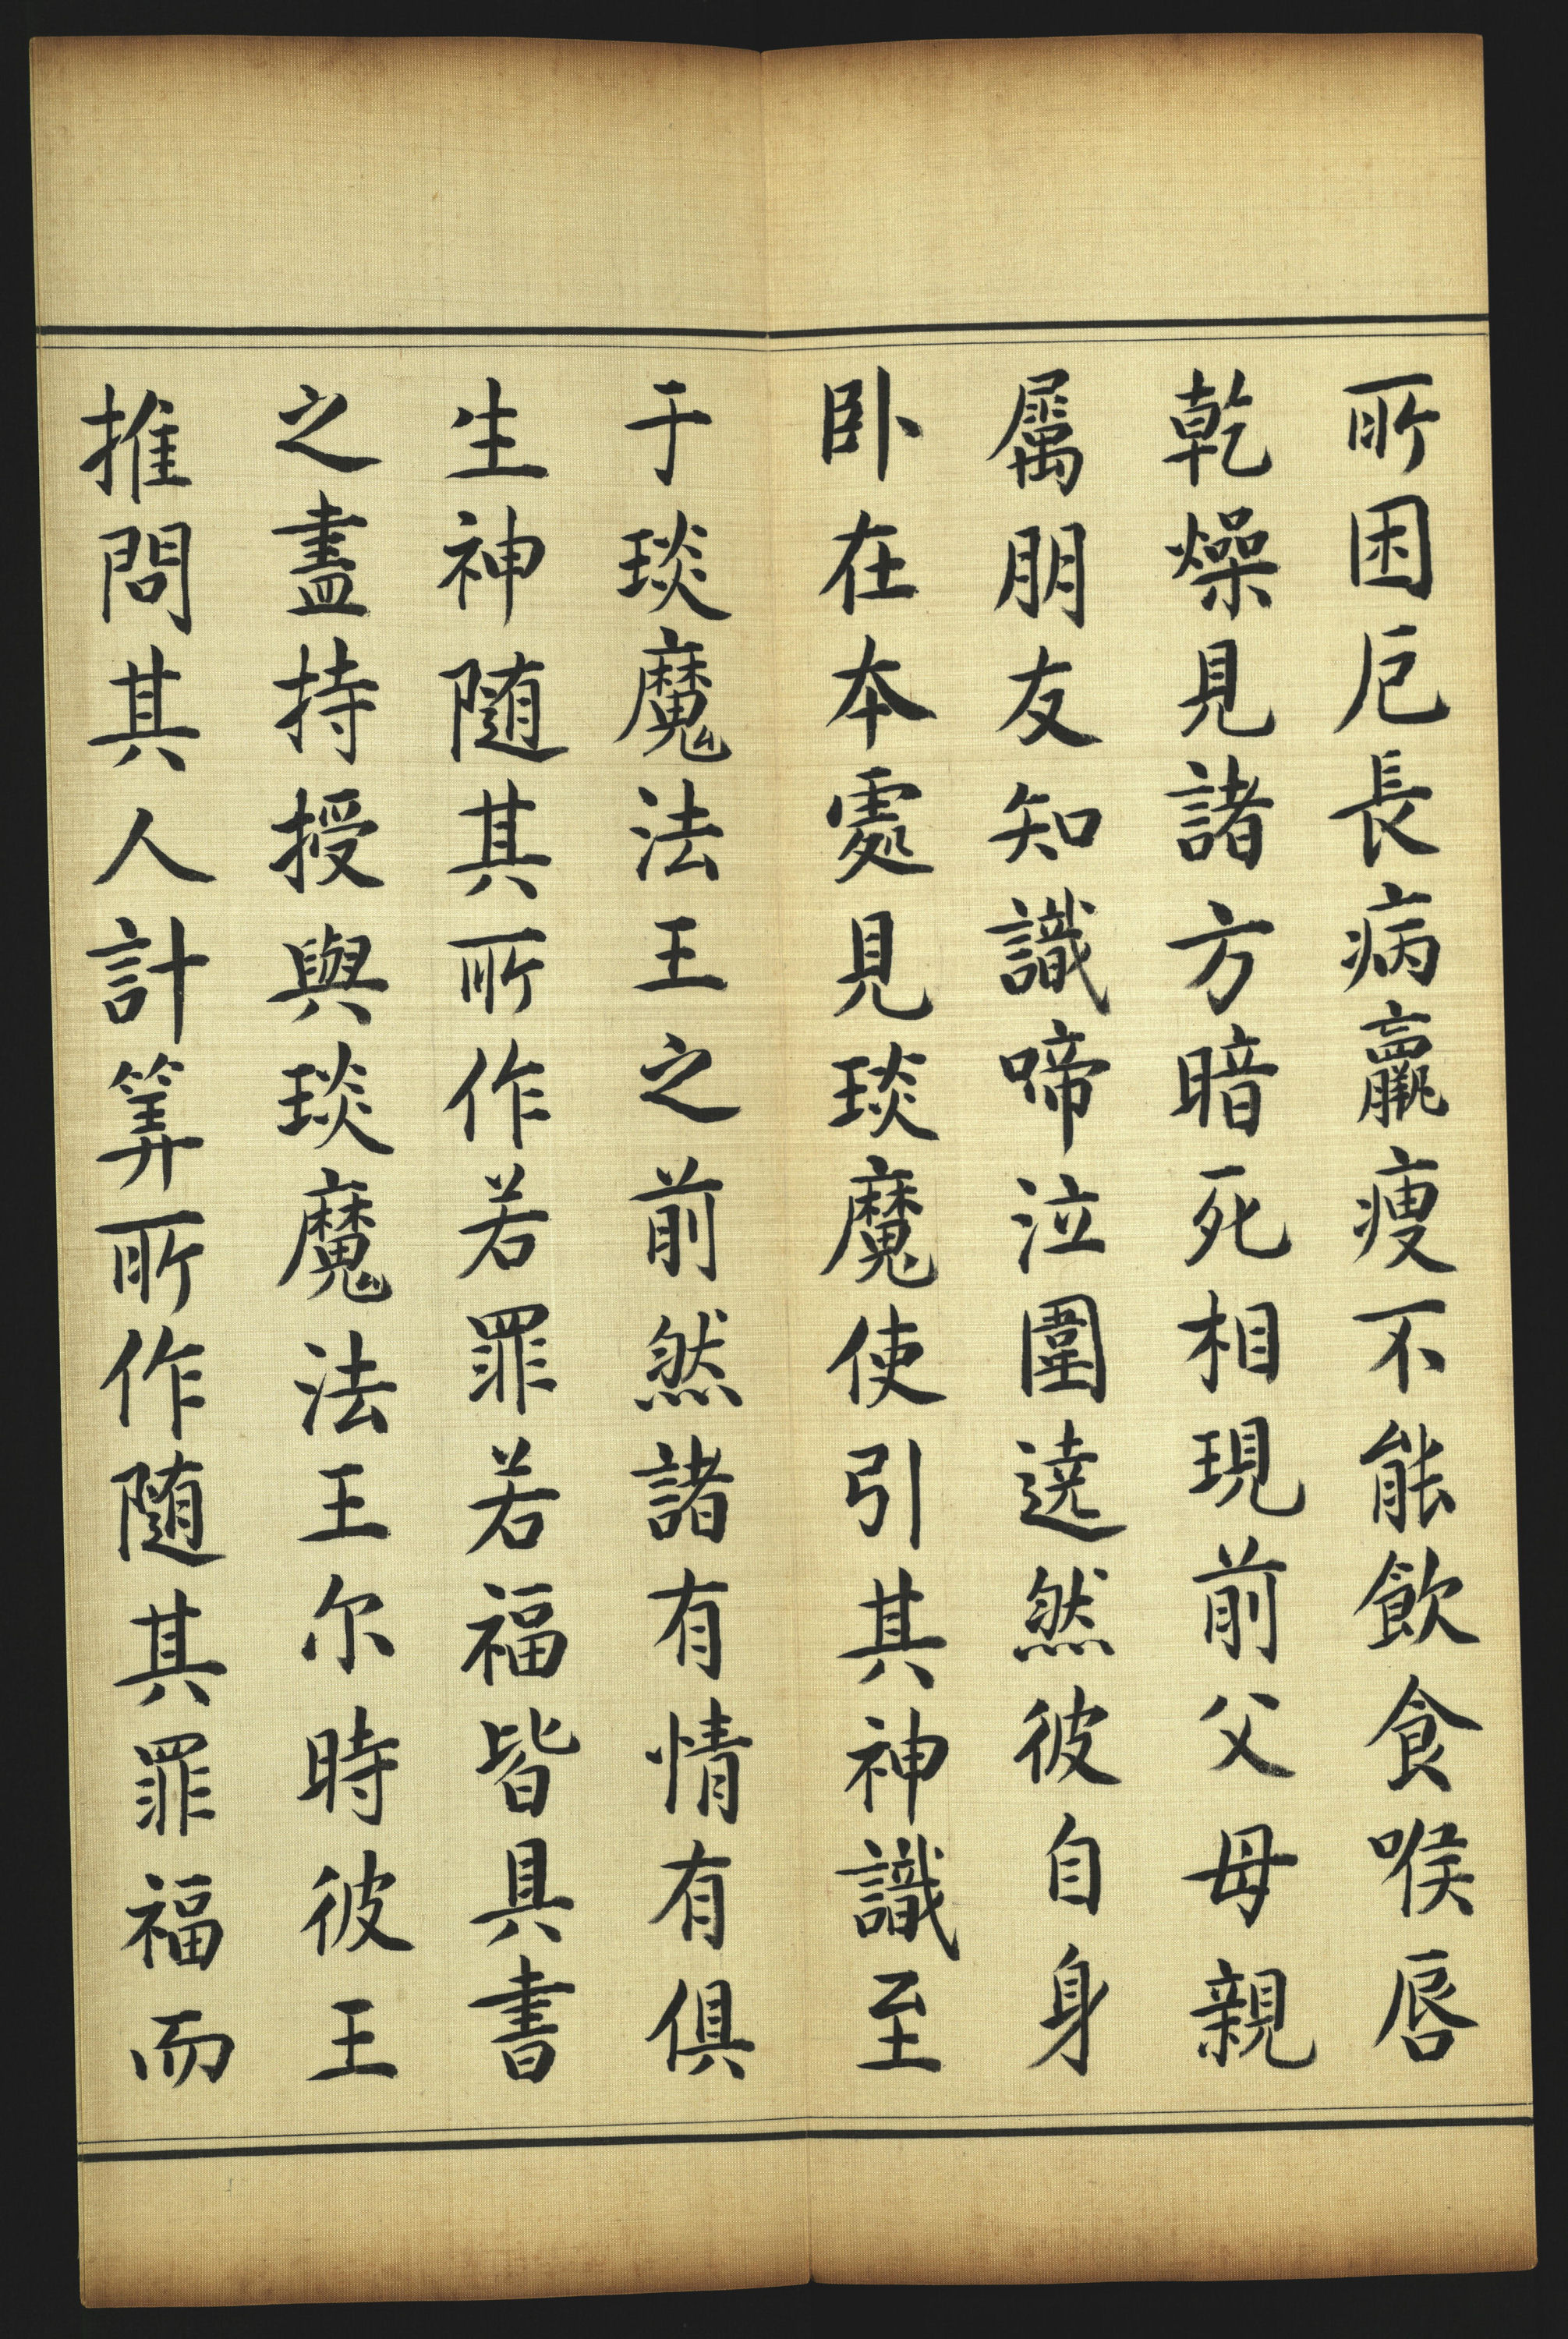 所困厄長病羸瘦不能飲食喉唇
乾燥見諸方暗死相現前父母親
屬朋友知識啼泣圍遶然彼自身
卧在本處見琰魔使引其神識至
于琰魔法王之前然諸有情有俱
生神隨其所作若罪若福皆具書
之盡持授與琰魔法王尔時彼王
推問其人計筭所作隨其罪福而